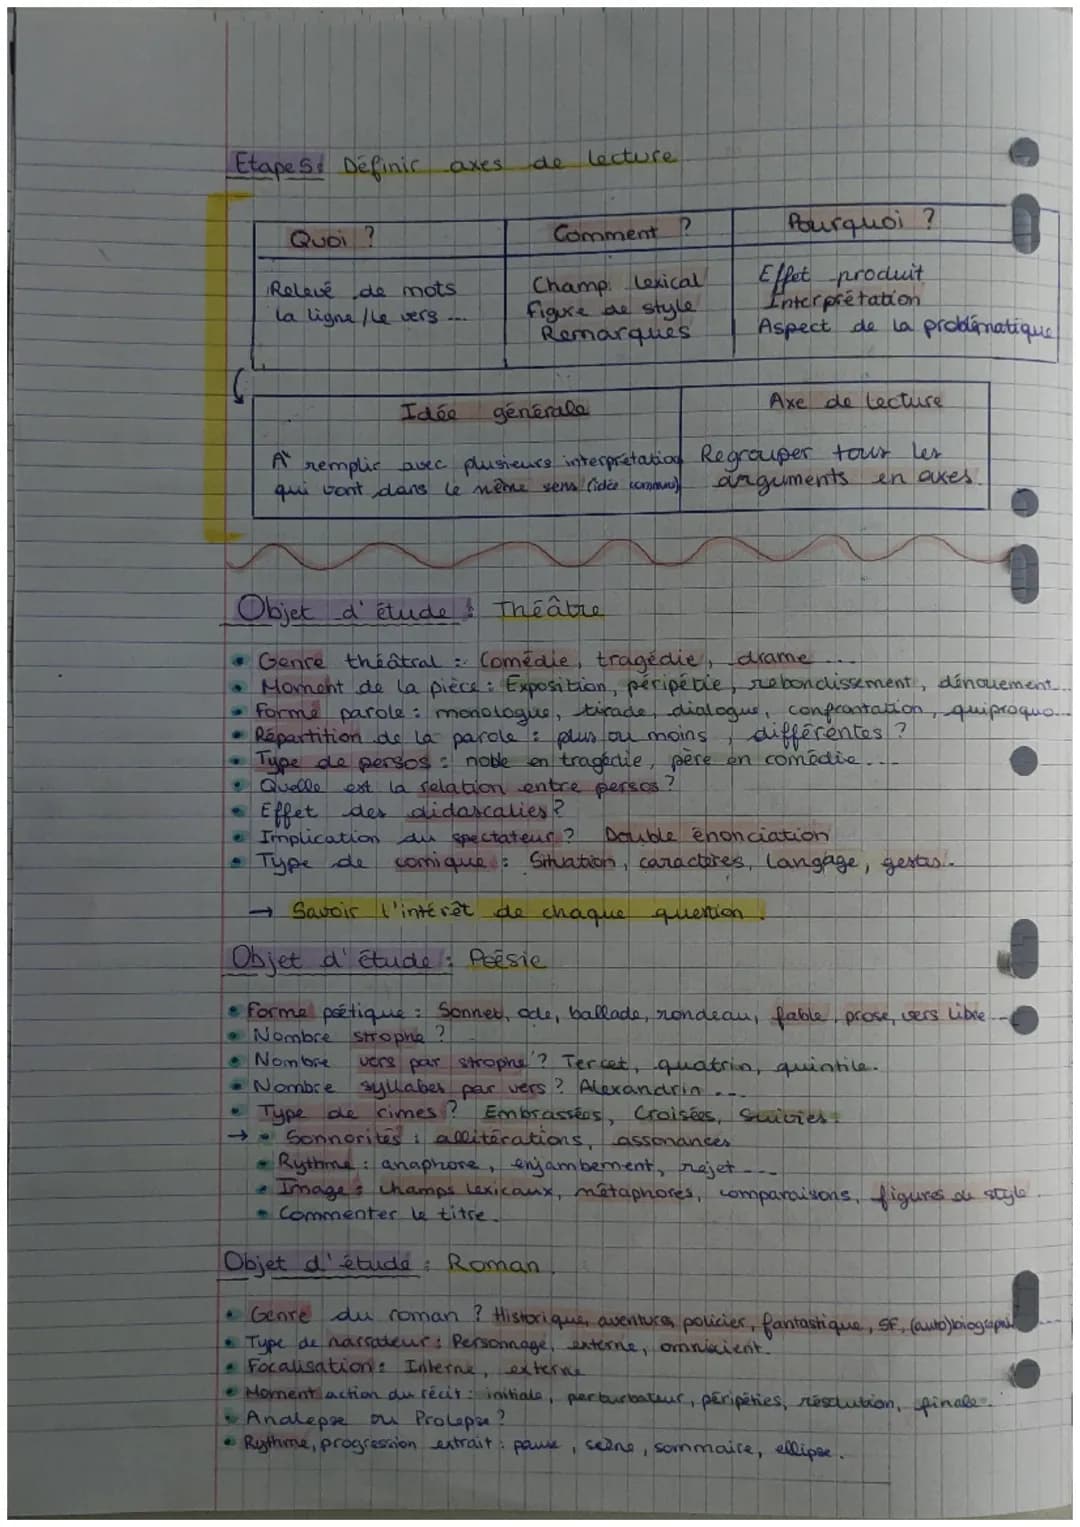 Etape 5: Définir axes de lecture
Quoi ? Comment ? Pourquoi ?
Relevé de mots Champ. lexical Effet produit
la ligne / le vers ... figure de style Interprétation
Remarques Aspect de la problématique
Idée générale Axe de lecture
À remplir avec plusieurs interprétation Regrouper tous les
qui vont dans le même sens (idée commune) arguments en axes.
Objet d'étude : Théâtre
• Genre théâtral : Comédie, tragédie, drame ...
• Moment de la pièce : Exposition, péripétie, rebondissement, dénouement...
• Forme parole : monologue, tirade, dialogue, confrontation, quiproquo...
• Répartition de la parole : plus ou moins, différentes ?
• Type de persos : noble en tragédie, père en comédie....
• Quelle est la relation entre persos ?
• Effet des didascalies ?
• Implication du spectateur ? Double énonciation
• Type de comique : Situation, caractères, langage, gestes..
→ Savoir l'intérêt de chaque question.
Objet d'étude : Poésie
• Forme poétique : Sonnet, ode, ballade, rondeau, fable, prose, vers libre...
• Nombre strophe ?
• Nombre vers par strophe ? Tercet, quatrin, quintile.
• Nombre syllabes par vers ? Alexandrin ...
• Type de rimes ? Embrassées, Croisées, Suivies.
→ • Sonnorités : allitérations, assonances
• Rythme : anaphore, enjambement, rejet ...
• Image : champs lexicaux, métaphores, comparaisons, figures de style.
• Commenter le titre.
Objet d'étude : Roman.
• Genre du roman ? Historique, aventures, policier, fantastique, SF, (auto)biographie ...
• Type de narrateur : Personnage, externe, omniscient.
• Focalisation : Interne, externe
• Moment action du récit : initiale, perturbateur, péripéties, résolution, finale.
• Analepse ou Prolepse ?
• Rythme, progression extrait : pause, scène, sommaire, ellipse.